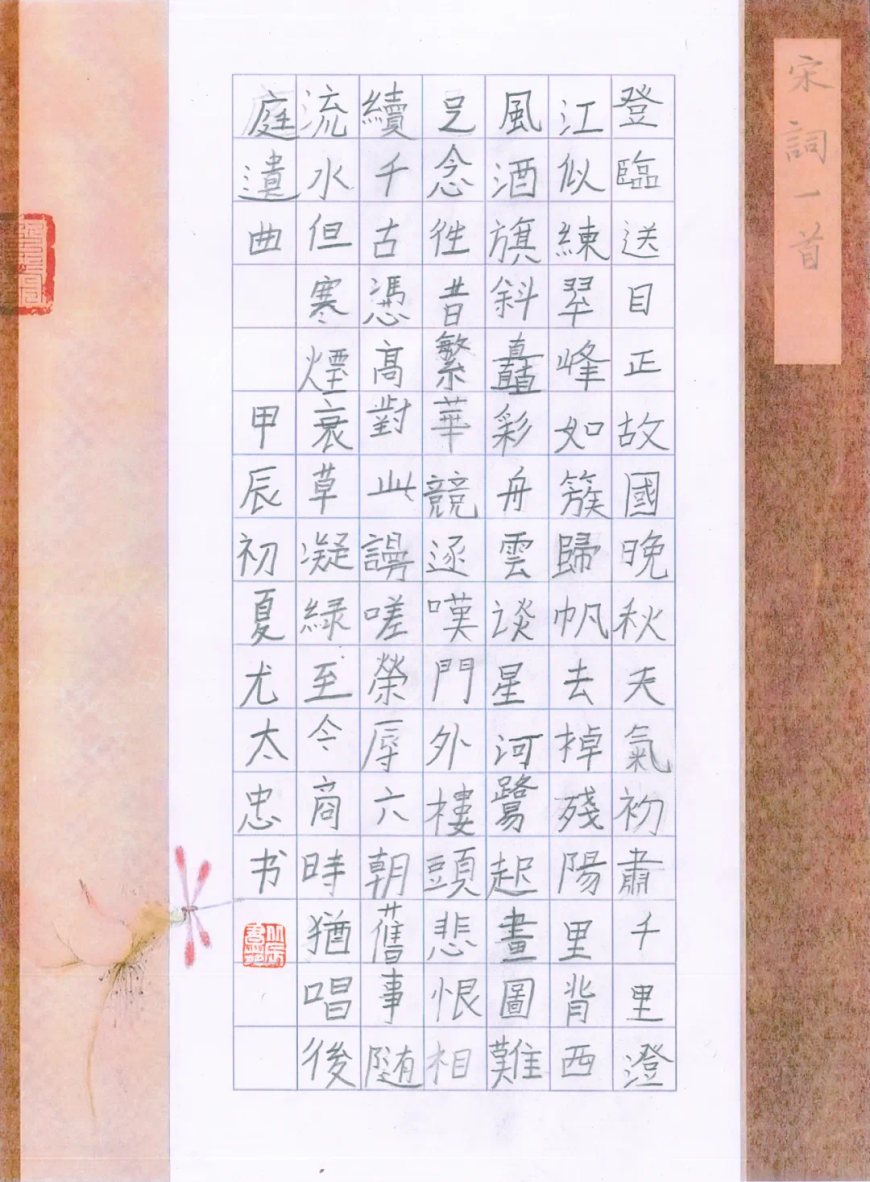 宋詞一首
登臨送目正故國晚秋天氣初肅千里澄
江似練翠峰如簇歸帆去掉殘陽里背西
風酒旗斜矗彩舟雲淡星河鷺起畫圖難
足念往昔繁華競逐嘆門外樓頭悲恨相
續千古憑高對此謾嗟榮辱六朝舊事随
流水但寒煙衰草凝綠至今商時猶唱後
庭遺曲
甲辰初夏尤太忠书